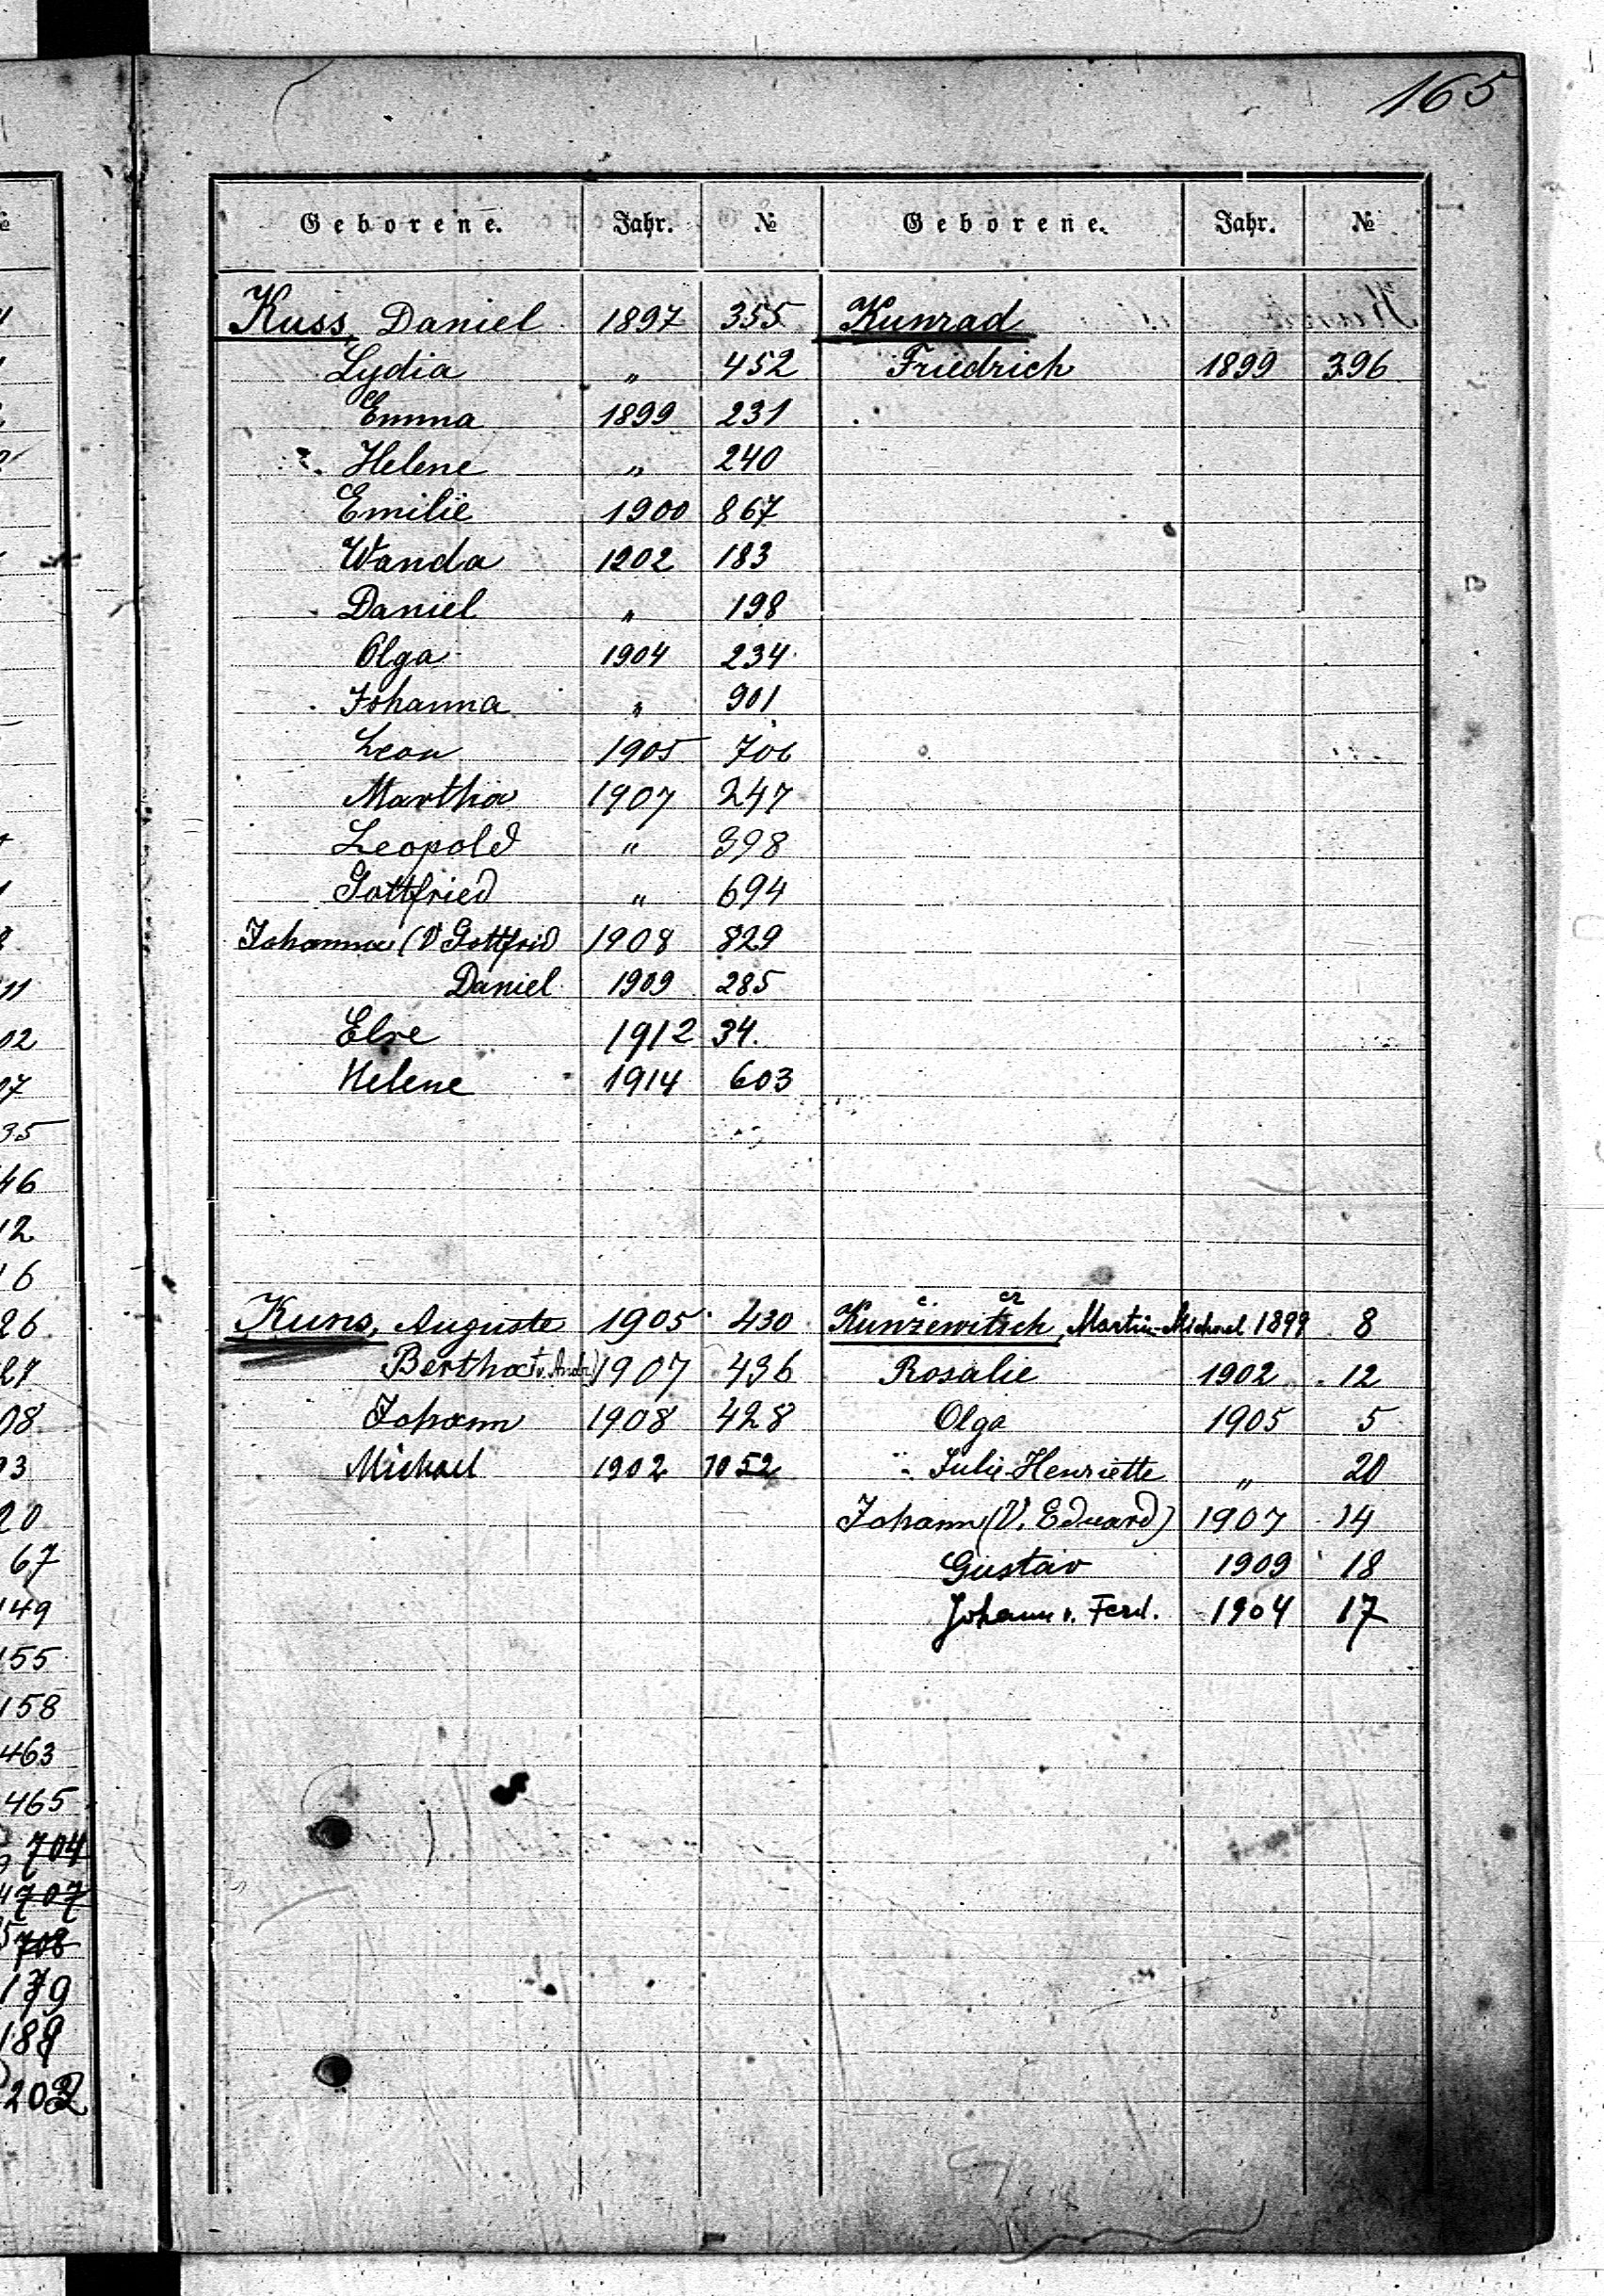 165
Geborene. Jahr. №
Kuss, Daniel 1897 355
Lydia " 452
Emma 1899 231
Helene " 240
Emilie 1900 867
Wanda 1902 183
Daniel " 198
Olga 1904 234
Johanna " 901
Leon 1905 706
Martha 1907 247
Leopold " 398
Gottfried " 694
Johanna (V Gottfrid 1908 829
Daniel 1909 285
Else 1912 34.
Helene 1914 603
Kuns, Auguste 1905 430
Bertha 1907 436
Johann 1908 428
Michael 1902 1052
Geborene. Jahr. №
Kunrad
Friedrich 1899 396
Kunzewitsch, Martin-Michael 1899 8
Rosalie 1902 12
Olga 1905 5
Julie-Henriette " 20
Johann (V. Eduard) 1907 14
Gustav 1909 18
Johann v. Ferd. 1904 17
11
02
07
35
46
12
16
26
27
08
93
20
67
149
155
158
463
465
704
707
708
179
189
202